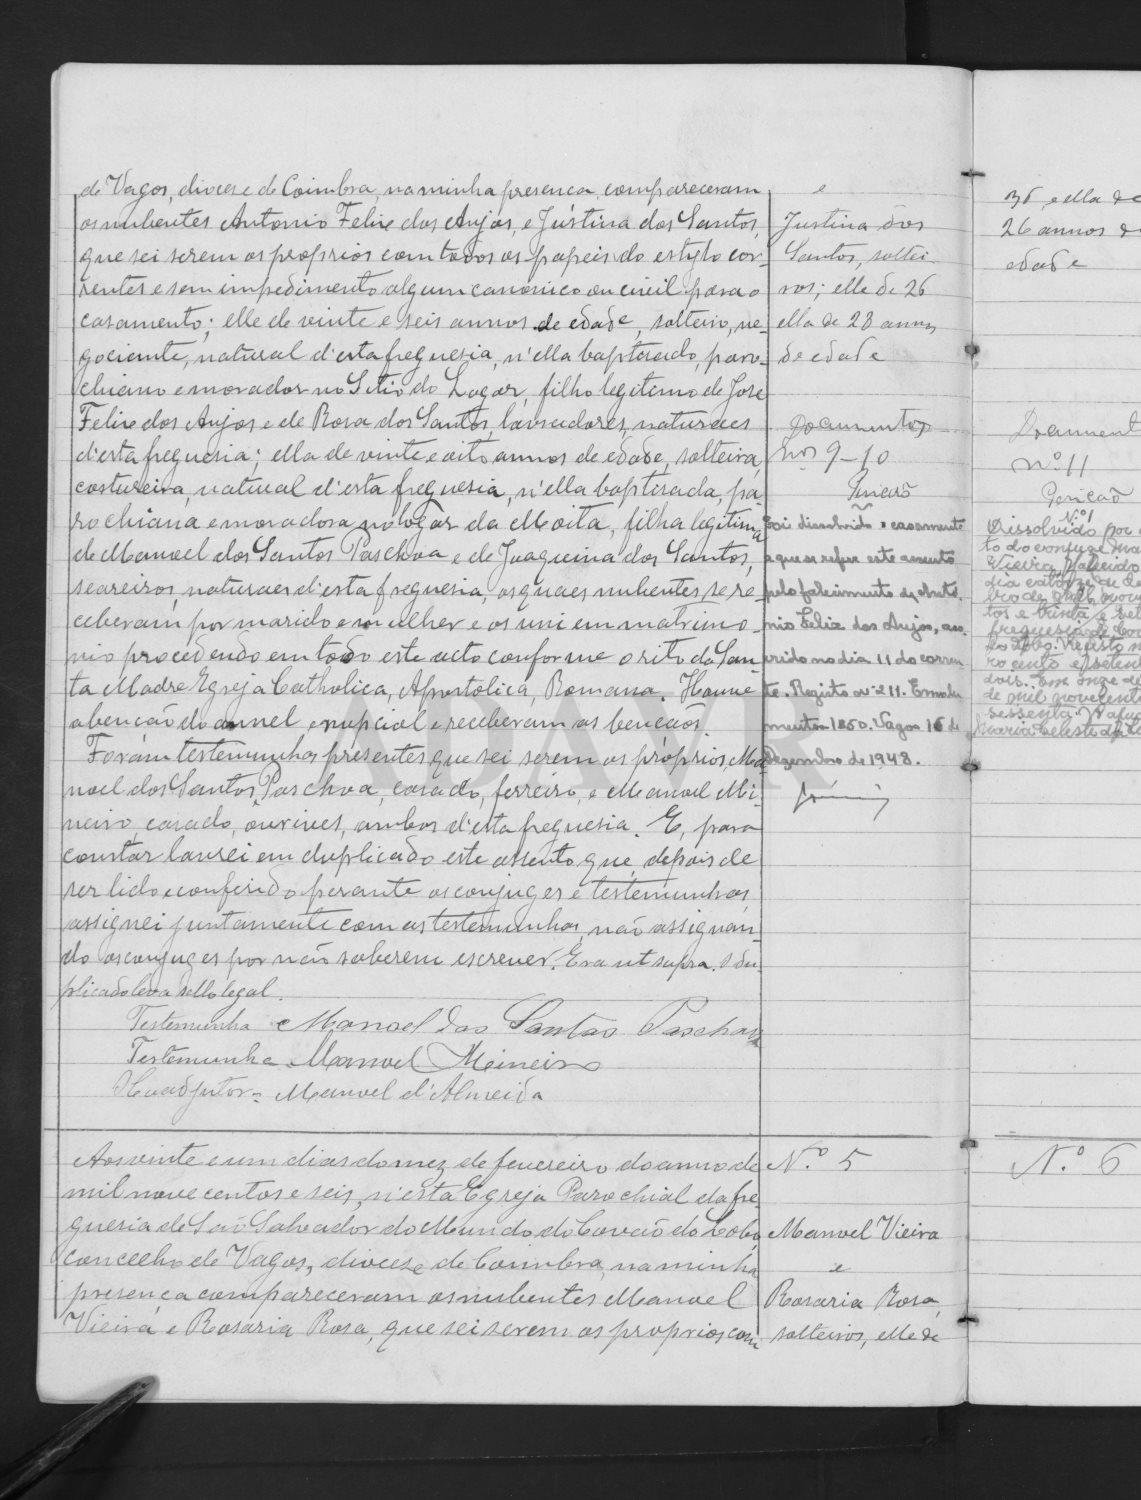 de Vagos, diocese de Coimbra, na minha presença compareceram
os nubentes Antonio Felix dos Anjos, e Justina dos Santos,
que sei serem os proprios com todos os papeis do estylo cor-
rentes e sem impedimento algum canonico ou civil para o
casamento; elle de vinte e seis annos de edade, solteiro, ne-
gociante, natural d'esta freguesia, n'ella baptisado, paro-
chiano e morador no Sitio do Logar, filho legitimo de José
Felix dos Anjos e de Rosa dos Santos, lavradores, naturaes
d'esta freguesia; ella de vinte e oito annos de edade, solteira,
costureira, natural d'esta freguesia, n'ella baptisada, pa-
rochiana e moradora no logar da Moita, filha legitima
de Manoel dos Santos Paschoa e de Joaquina dos Santos,
seareiros, naturaes d'esta freguesia, os quaes nubentes se re-
ceberam por marido e mulher e os uni em matrimo-
nio procedendo em todo este acto conforme o rito da San-
ta Madre Egreja Catholica, Apostolica, Romana. Houve
abenção do annel nupcial e receberam as bençãos.
Foram testemunhas presentes que sei serem os próprios, Ma-
noel dos Santos Paschoa, casado, ferreiro, e Manoel Mi-
neiro, casado, ourives, ambos d'esta freguesia. E, para
constar lavrei em duplicado este assento que, depois de
ser lido e conferido perante os conjuges e testemunhas,
assignei juntamente com as testemunhas, não assignan-
do os conjuges por não saberem escrever. Era ut supra. O du-
plicado leva sello legal.
Testemunha Manoel dos Santos Paschoa
Testemunha Manoel Mineiro
O Coadjutor = Manoel d'Almeida
e
Justina dos
Santos, soltei-
ros; elle de 26
ella de 28 annos
de edade
Documentos
Nos 9-10
Foi dissolvido o casamento
a que se refere este assento
pelo falecimento de Anto-
nio Felix dos Anjos, oco-
rrido no dia 11 do corren-
te. Registo nº 211. Emolu-
mentos 1$50. Vagos 16 de
Dezembro de 1948.
Aos vinte e um dias do mez de fevereiro do anno de
mil nove centos e seis, n'esta Egreja Parochial da fre-
guesia de São Salvador do Mundo do Covão do Lobo,
concelho de Vagos, diocese de Coimbra, na minha
presença compareceram os nubentes Manoel
Vieira e Rosaria Rosa, que sei serem os proprios com
N.º 5
Manoel Vieira
e
Rosaria Rosa,
solteiros, elle de
36 e ella de
26 annos de
edade
Document
nº 11
Nº 1
Dissolvido por
N.º 6